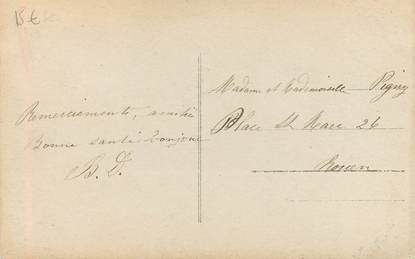 15 €
Remerciements, amitiés
Bonne santé bonjour
B. D.
Madame et Mademoiselle Pigny
Place St Marc 26
Rouen